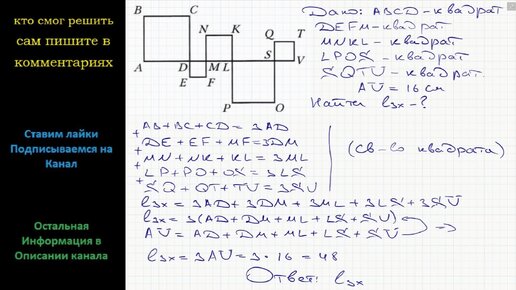 кто смог решить
сам пишите в
комментариях
Ставим лайки
Подписываемся на
Канал
Остальная
Информация в
Описании канала
B C
N K
Q T
A D M L S V
E F
P O
Дано: ABCD – квадрат
DEFM – квадрат
MNKL – квадрат
LPOS – квадрат
SQTU – квадрат
AU = 16 см
Найти lзх – ?
+ AB + BC + CD = 3AD
+ DE + EF + MF = 3DM
+ MN + NK + KL = 3ML
+ LP + PO + OS = 3LS
SQ + QT + TU = 3SU
(св-во квадрата)
lзх = 3AD + 3DM + 3ML + 3LS + 3SU
lзх = 3(AD + DM + ML + LS + SU)
AU = AD + DM + ML + LS + SU ⇒
lзх = 3AU = 3 · 16 = 48
Ответ: lзх